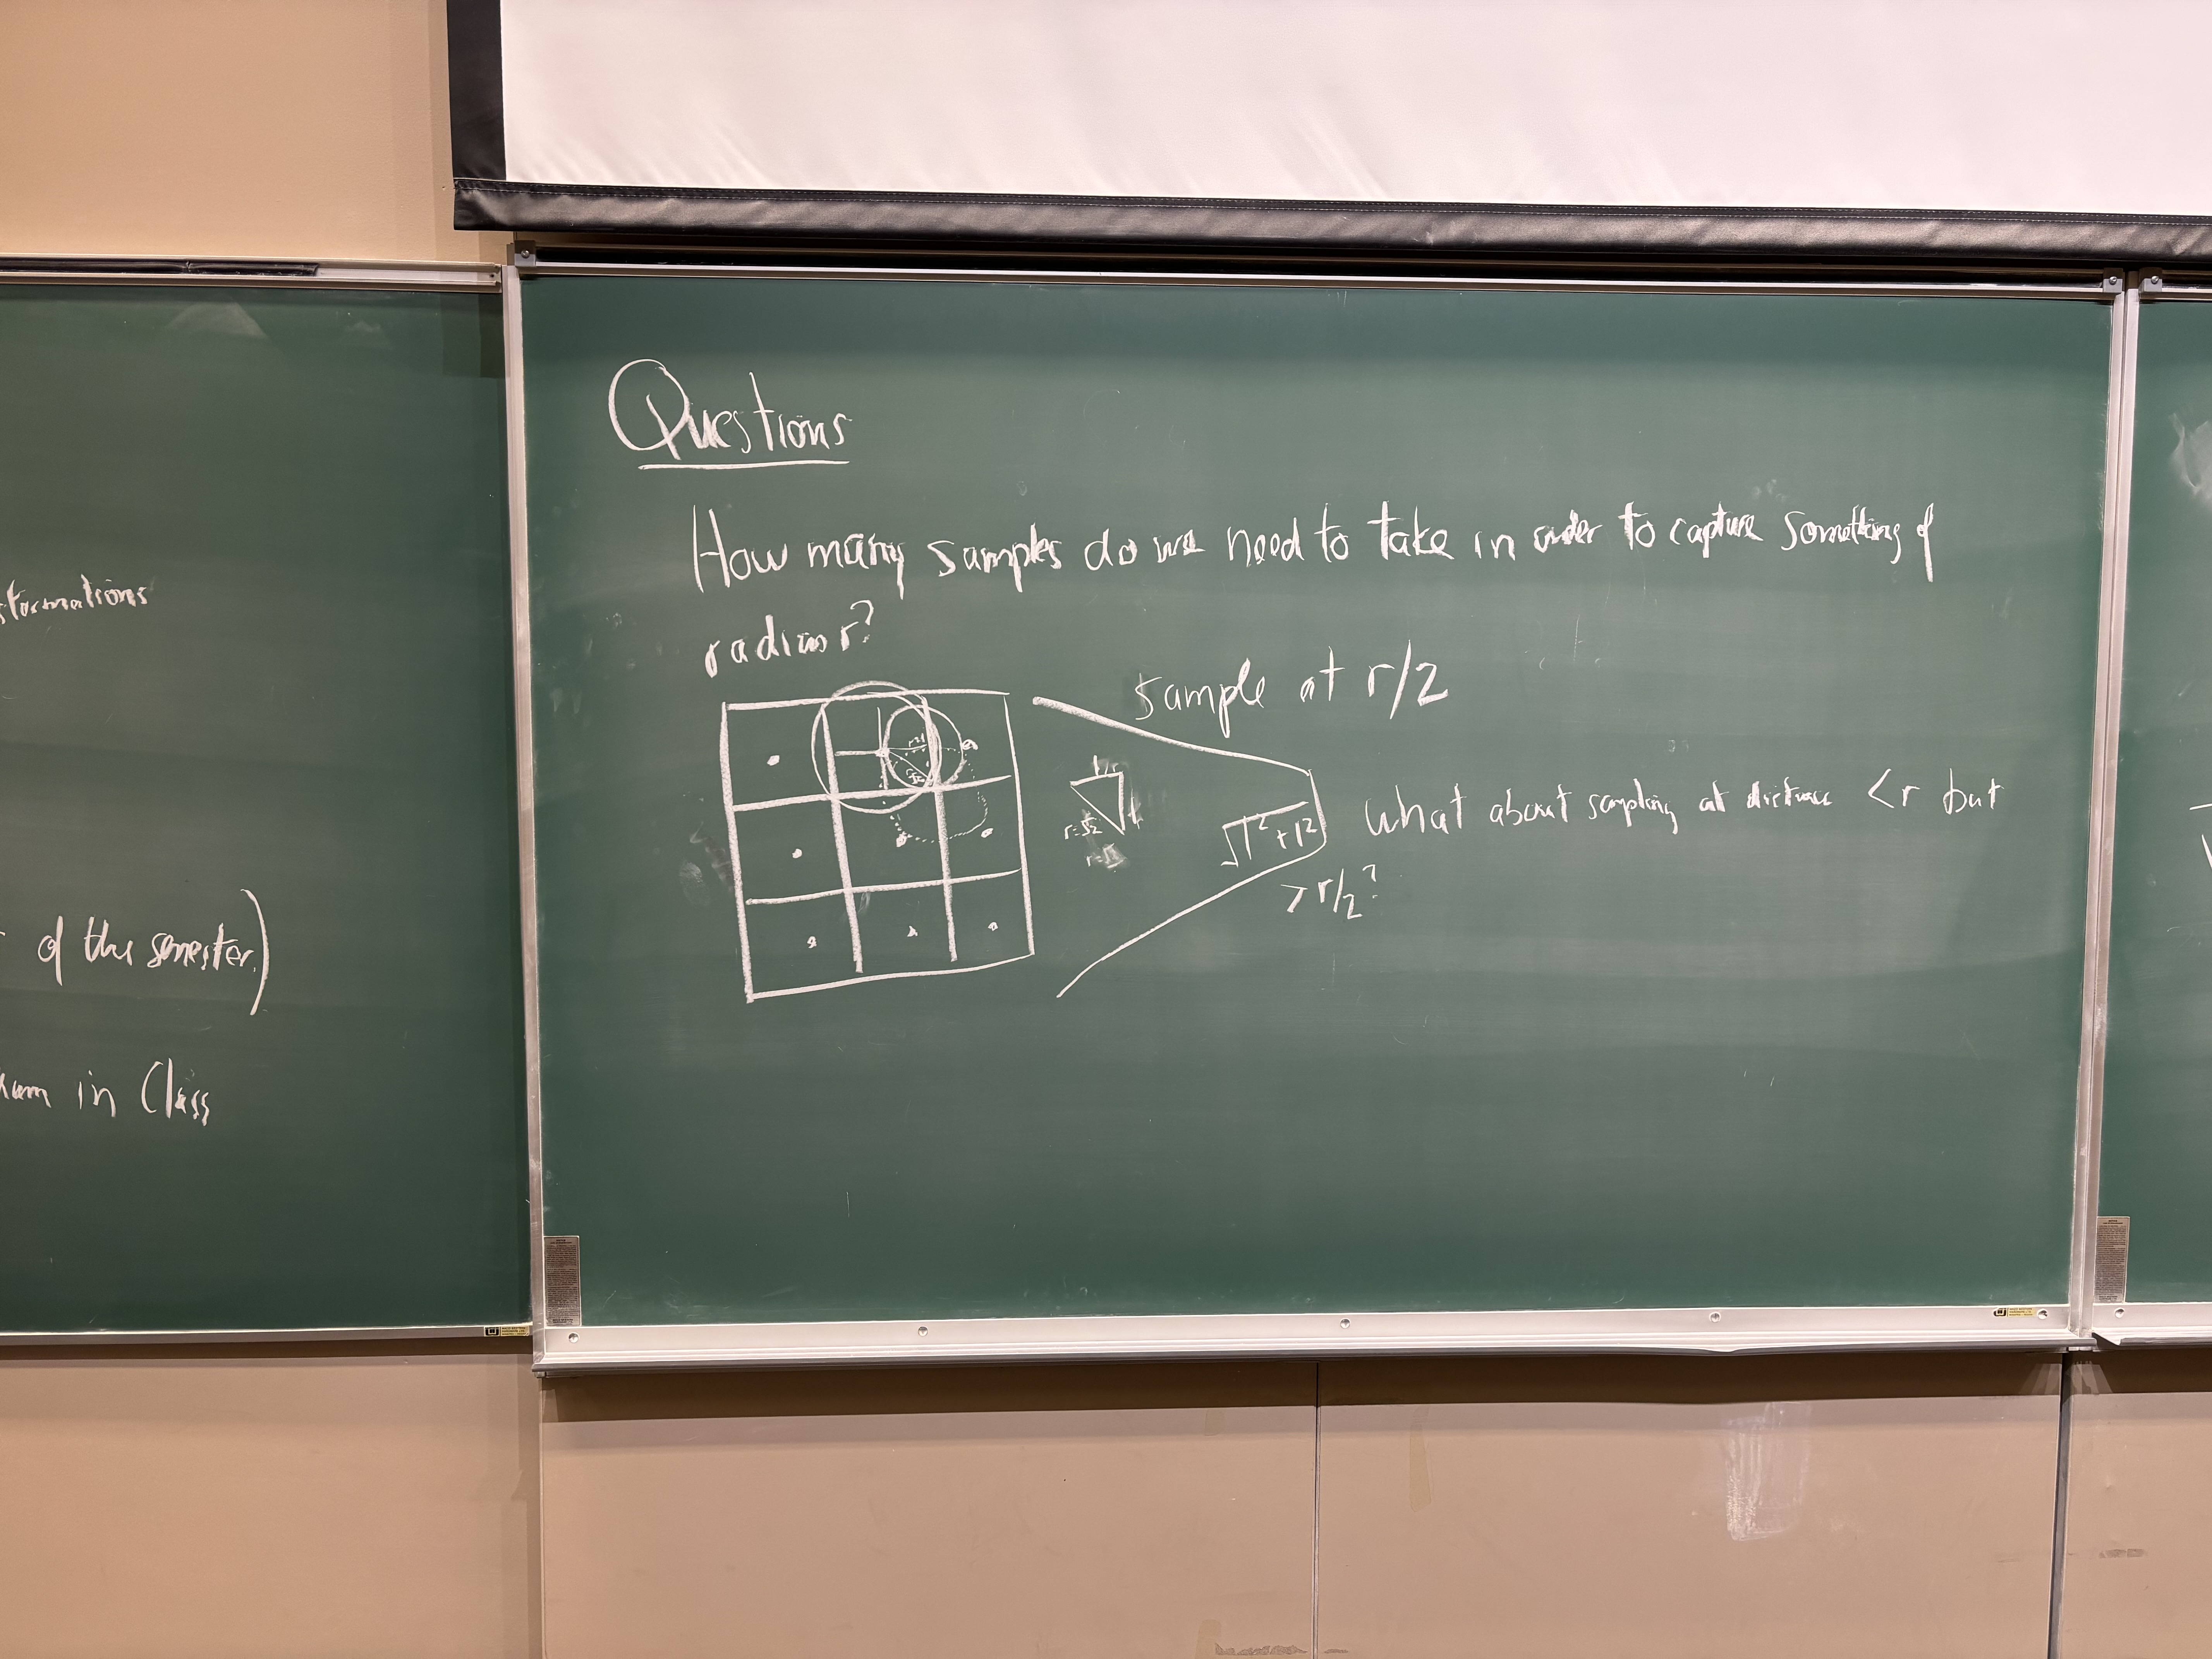 stormations
of the semester.)
in Class
Questions
How many samples do we need to take in order to capture something of
radius r?
sample at r/2
r=√2
√1²+1²
What about sampling at distance <r but
>r/2?